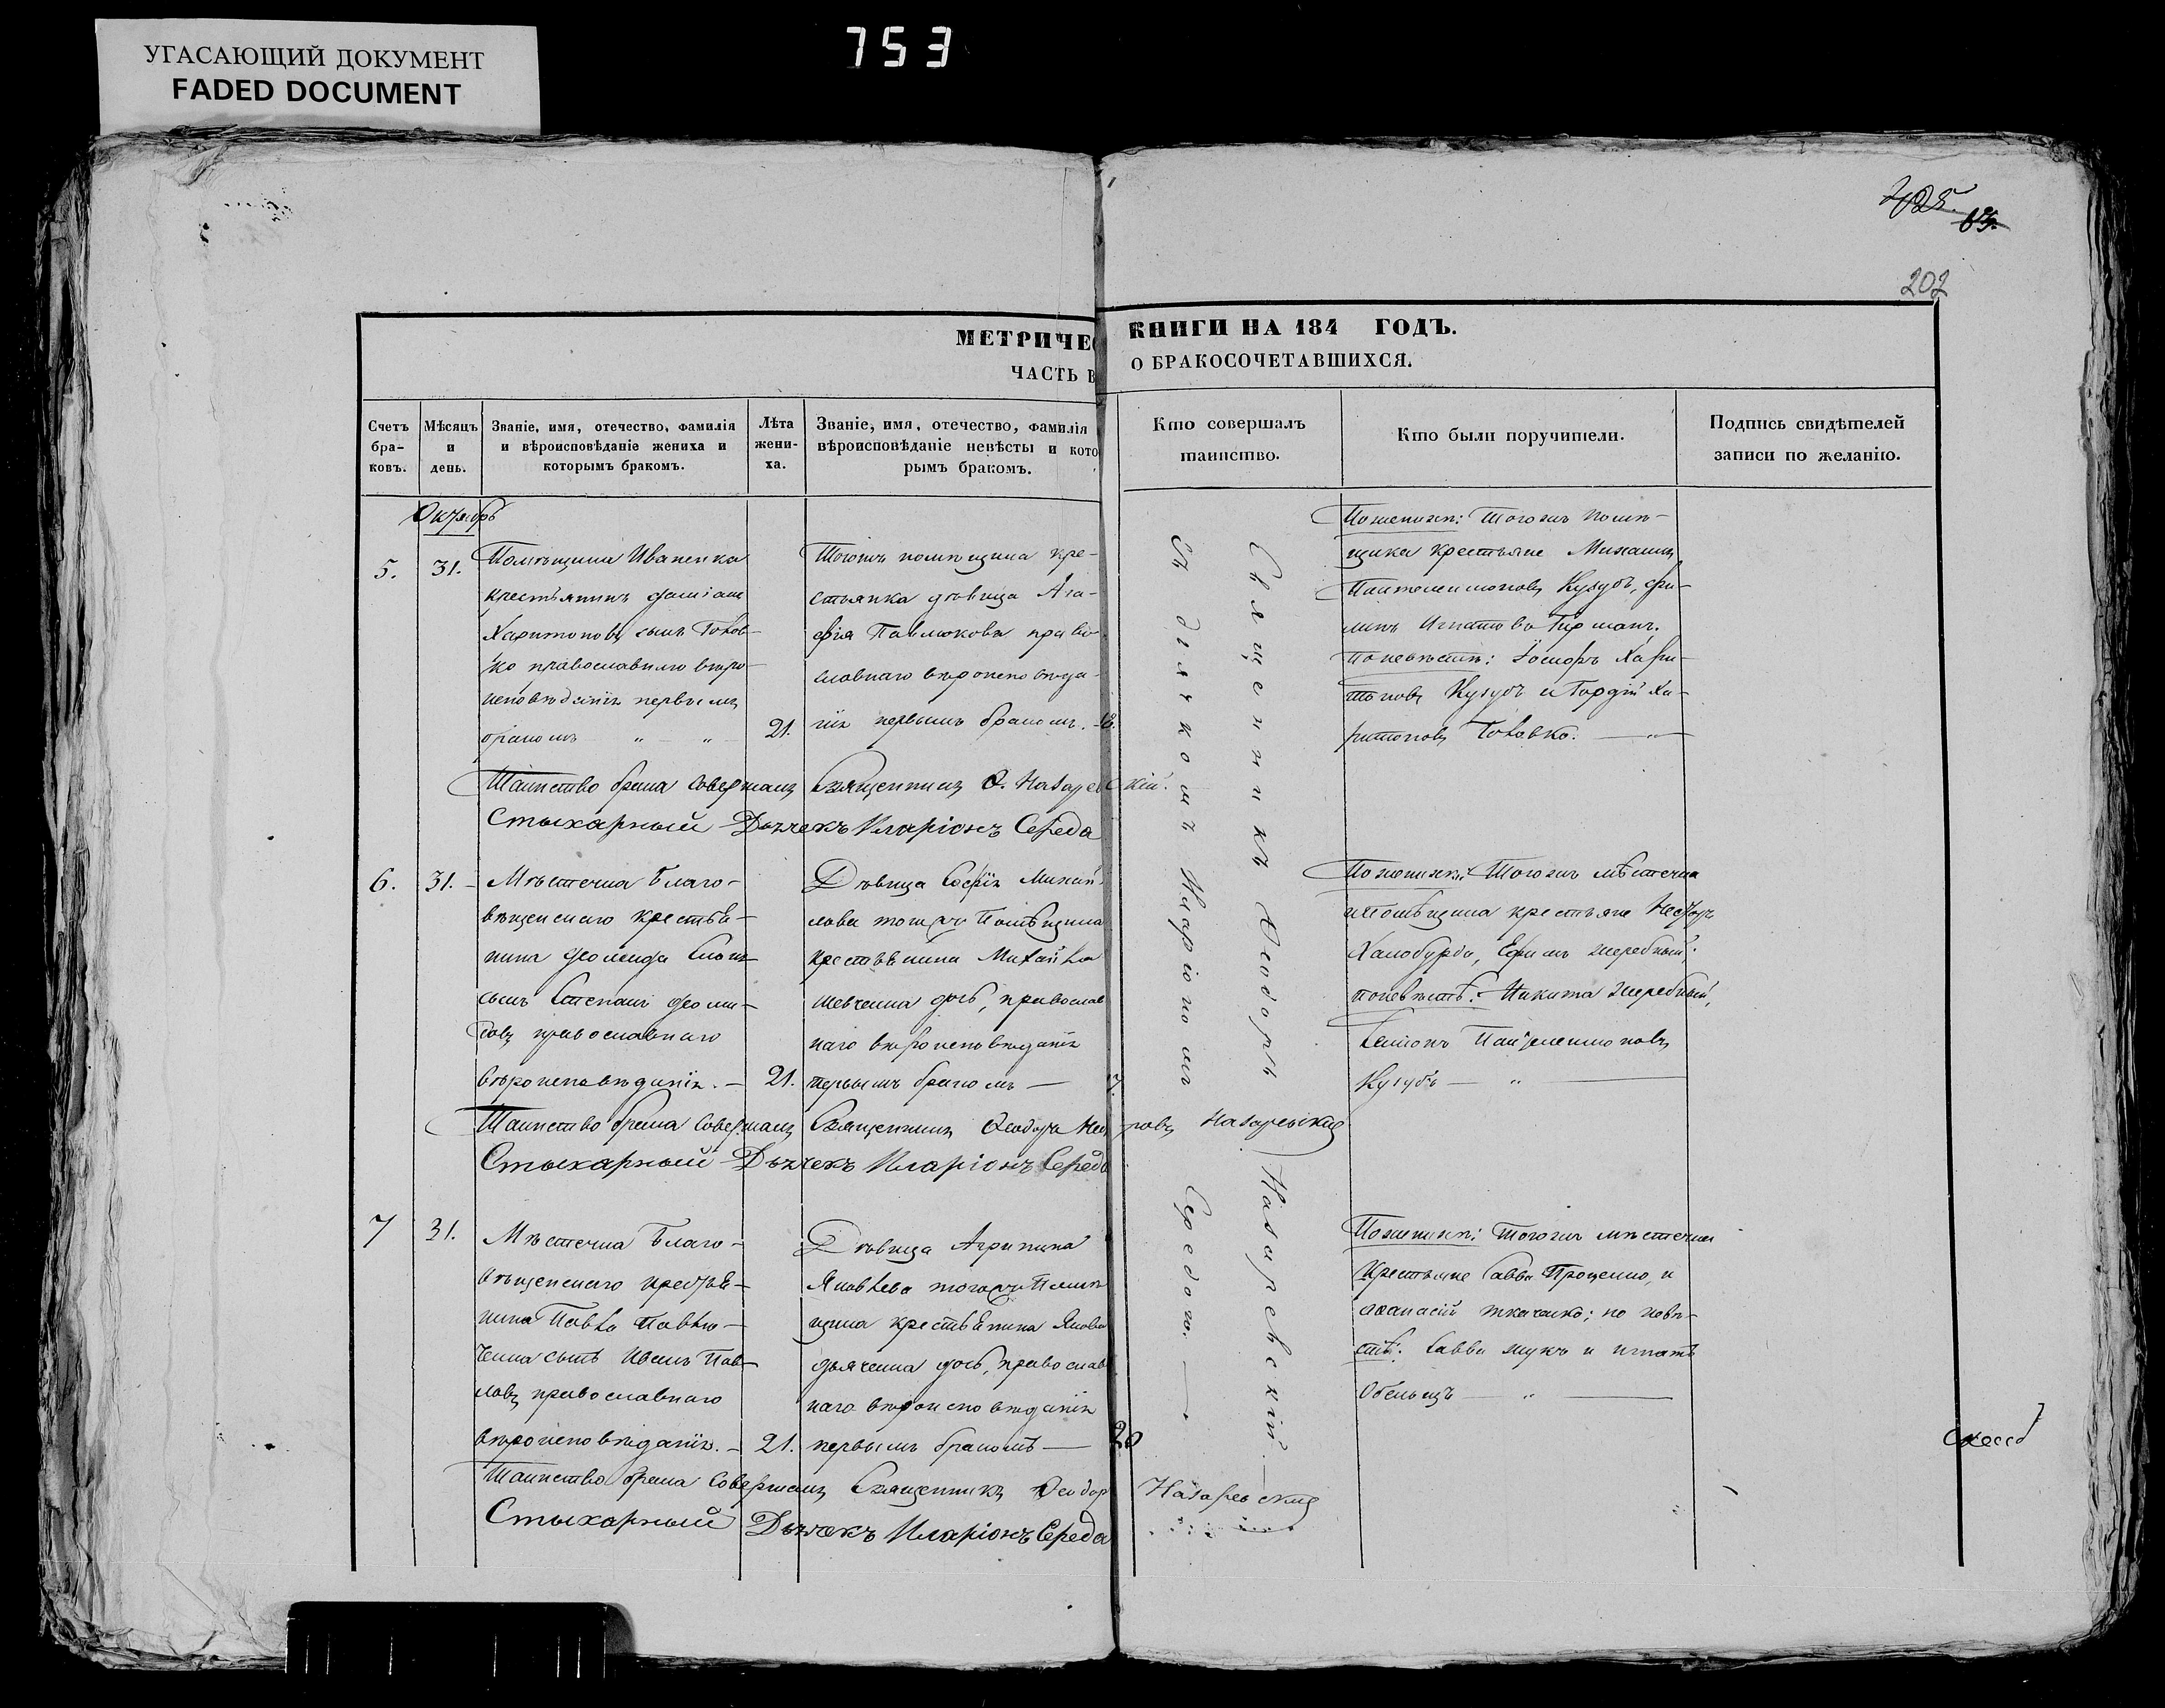 УГАСАЮЩИЙ ДОКУМЕНТ
FADED DOCUMENT
753
202
МЕТРИЧЕС
КНИГИ НА 184 ГОДЪ.
ЧАСТЬ В
О БРАКОСОЧЕТАВШИХСЯ.
Счетъ бра- ковъ.
Мѣсяцъ и день.
Званіе, имя, отечество, фамилія и вѣроисповѣданіе жениха и которымъ бракомъ.
Лѣта жени- ха.
Званіе, имя, отечество, фамилія вѣроисповѣданіе невѣсты и кото рымъ бракомъ.
Кто совершалъ таинство.
Кто были поручители.
Подпись свидѣтелей записи по желанію.
Октябрь
5.
31.
Помѣщика Иваненка
крестьянинъ
Харитоновъ сынъ Головъ
ко православнаго вѣро
исповѣданія первымъ
бракомъ " "
21.
Тогожъ помѣщика кре-
стьянка дѣвица Ага-
фія Павлюкова право
славнаго вѣроисповѣда-
нія первымъ бракомъ.
Священникъ Ѳеодоръ Назаревскій
съ дьячкомъ Иларіономъ Середою.
По женихѣ: Тогожъ помѣ-
щика крестьяне Михаилъ
Пантелеимоновъ Кузубъ,
Игнатовъ
по невѣстѣ: Хари-
тоновъ Кузубъ и Гордій Ха-
ритоновъ Головко. "
Таинство брака совершалъ Священникъ Ѳ. Назаревскій.
Стыхарный Дьячекъ Иларіонъ Середа
6.
31.
Мѣстечка Благо-
вѣщенскаго крестья-
нина
сынъ Степанъ
православнаго
вѣроисповѣданія.
21.
Дѣвица Софія Михай
лова тогожъ Помѣщика
крестьянина Михайла
Шевченка дочь, православ
наго вѣроисповѣданія
первымъ бракомъ
По женихѣ: Тогожъ мѣстечка
и Помѣщика крестьяне Несторъ
Халобурда, Ефимъ Жеребный.
по невѣстѣ: Никита Жеребный,
Пантелеимоновъ
Кузубъ "
Таинство брака совершалъ Священникъ Ѳеодоръ Назаревскій
Стыхарный Дьячекъ Иларіонъ Середа
7
31.
Мѣстечка Благо-
вѣщенскаго крестья-
нина Павла Павлю-
ченка сынъ Иванъ Пав-
ловъ православнаго
вѣроисповѣданія.
21.
Дѣвица Агрипина
Яковлева тогожъ Помѣ
щика крестьянина Якова
Дьяченка дочь, православ
наго вѣроисповѣданія
первымъ бракомъ
20
По женихѣ: тогожъ мѣстечка
Крестьяне Савва Проценко, и
Аѳанасій Ткаченко; по невѣ-
стѣ: Савва Жукъ и Игнатъ
"
Таинство брака совершалъ Священникъ Ѳеодоръ Назаревскій
Стыхарный Дьячекъ Иларіонъ Середа